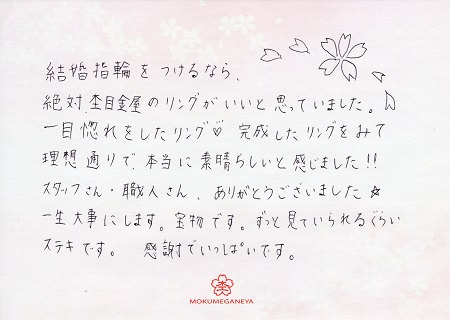 結婚指輪をつけるなら、
絶対、杢目金屋のリングがいいと思っていました。
一目惚れをしたリング♡ 完成したリングをみて
理想通りで、本当に素晴らしいと感じました!!
スタッフさん・職人さん、ありがとうございました☆
一生大事にします。宝物です。ずっと見ていられるぐらい
ステキです。 感謝でいっぱいです。
杢
MOKUMEGANEYA